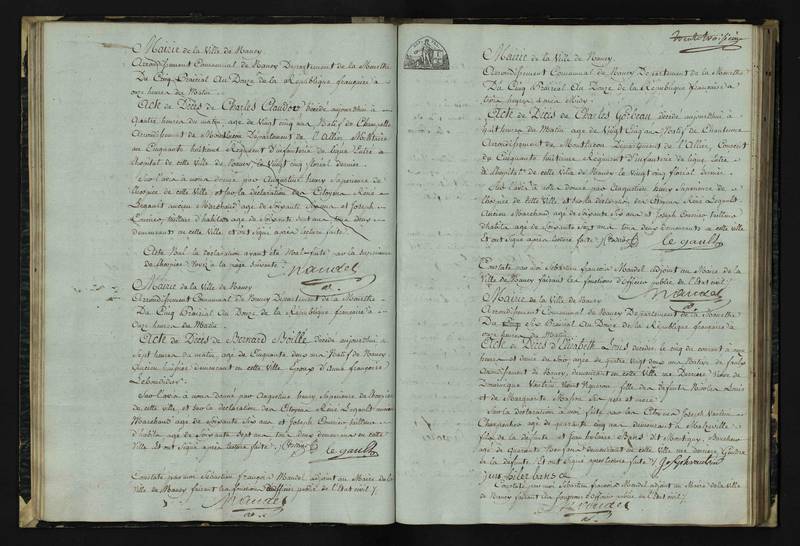 Mairie de la Ville de Nancy
Arrondissement Communal de Nancy Departement de la Meurthe
Du Cinq Prairial An Douze de la République française à
onze heures du Matin
Acte de Décès de Charles Claudot décédé aujourd'hui à
quatre heures du matin, age de Vingt cinq ans Natif de
Arrondissement de Montluçon Département de l'Allier, Militaire
au Cinquante huitieme Regiment d'infanterie de ligne Entré à
l'hopital de cette Ville de Nancy le Vingt cinq floréal dernier
Sur l'avis à nous donné par Augustine henry Superieure de
l'hospice de cette Ville, et sur la declaration des Citoyens René
Legault ancien Marchand age de Soixante Six ans et Joseph
tailleur d'habits age de Soixante Sept ans tous deux
demeurants en cette ville, et ont Signé après lecture faite
Acte Nul la declaration ayant été mal faite par la Superieure
de l'hospice Voir à la page Suivante
Mandel
Mairie de la Ville de Nancy
Arrondissement Communal de Nancy Departement de la Meurthe
Du Cinq Prairial An Douze de la République française à
Onze heures du Matin
Acte de Décès de Bernard Boillé décédé aujourd'hui à
Sept heures du matin, age de Cinquante deux ans Natif de Nancy
demeurant en cette Ville Epoux d'Anne françoise
Sur l'avis à nous donné par Augustine henry Superieure de l'hospice
de cette ville, et Sur la declaration des Citoyens René Legault ancien
Marchand age de Soixante Six ans et Joseph tailleur
d'habits age de Soixante Sept ans tous deux demeurants en cette
Ville et ont Signé après lecture faite
le gault
Constaté par moi Sébastien françois Mandel adjoint au Maire de la
Ville de Nancy faisant les fonctions d'officier public de l'Etat civil
Mandel
trente troisième
Mairie de la Ville de Nancy
Arrondissement Communal de Nancy Departement de la Meurthe
Du Cinq Prairial An Douze de la République française à
trois heures après Midy
Acte de Décès de Charles Godeau décédé aujourd'hui à
huit heures du Matin age de Vingt Cinq ans Natif de
Arrondissement de Montluçon Département de l'Allier, Conscrit
du Cinquante huitieme Regiment d'infanterie de ligne Entré à
l'hopital de cette Ville de Nancy le Vingt cinq floréal dernier
Sur l'avis à nous donné par Augustine henry Superieure de
l'hospice de cette Ville et sur la declaration des Citoyens René Legault
ancien Marchand age de Soixante Six ans et Joseph tailleur
d'habits age de Soixante Sept ans tous deux demeurants en cette ville
et ont Signé après lecture faite
le gault
Constaté par moi Sébastien françois Mandel adjoint au Maire de la
Ville de Nancy faisant les fonctions d'officier public de l'Etat civil
Mandel
Mairie de la Ville de Nancy
Arrondissement Communal de Nancy Departement de la Meurthe
Du Six Prairial An Douze de la République française à
heures du Matin
Acte de Décès d'Elisabeth Louis décédée le cinq du courant à onze
heures et demie du Soir age de quatre Vingt deux ans Native de
Arrondissement de Nancy, demeurant en cette Ville Veuve de
Dominique Vautrin Vigneron fille des defunts Nicolas Louis
et de Marguerite ses père et mère
Sur la declaration à nous faite par les Citoyens Joseph Vautrin
Charpentier age de quarante cinq ans demeurant à Malzeville
fils de la defunte et Jean hilaire Bans
age de Quarante demeurant en cette ville Gendre
de la defunte Et ont Signé après lecture faite
Jean hilaire bans
Constaté par moi Sébastien françois Mandel adjoint au Maire de la Ville
de Nancy faisant les fonctions d'officier public de l'Etat civil
Mandel